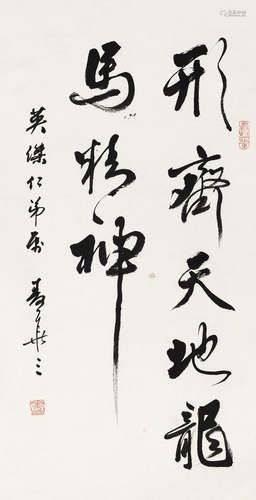 形齊天地龍
馬精神
英傑仁弟屬